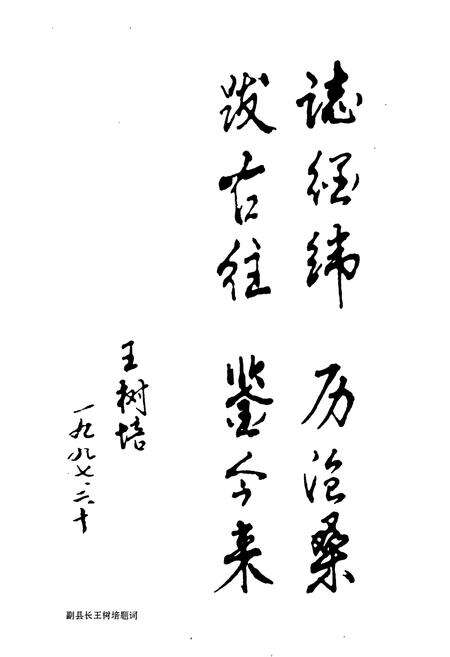 誌经纬 历沧桑
跋古往 鉴今来
王树培
一九八七.六.十
副县长王树培题词